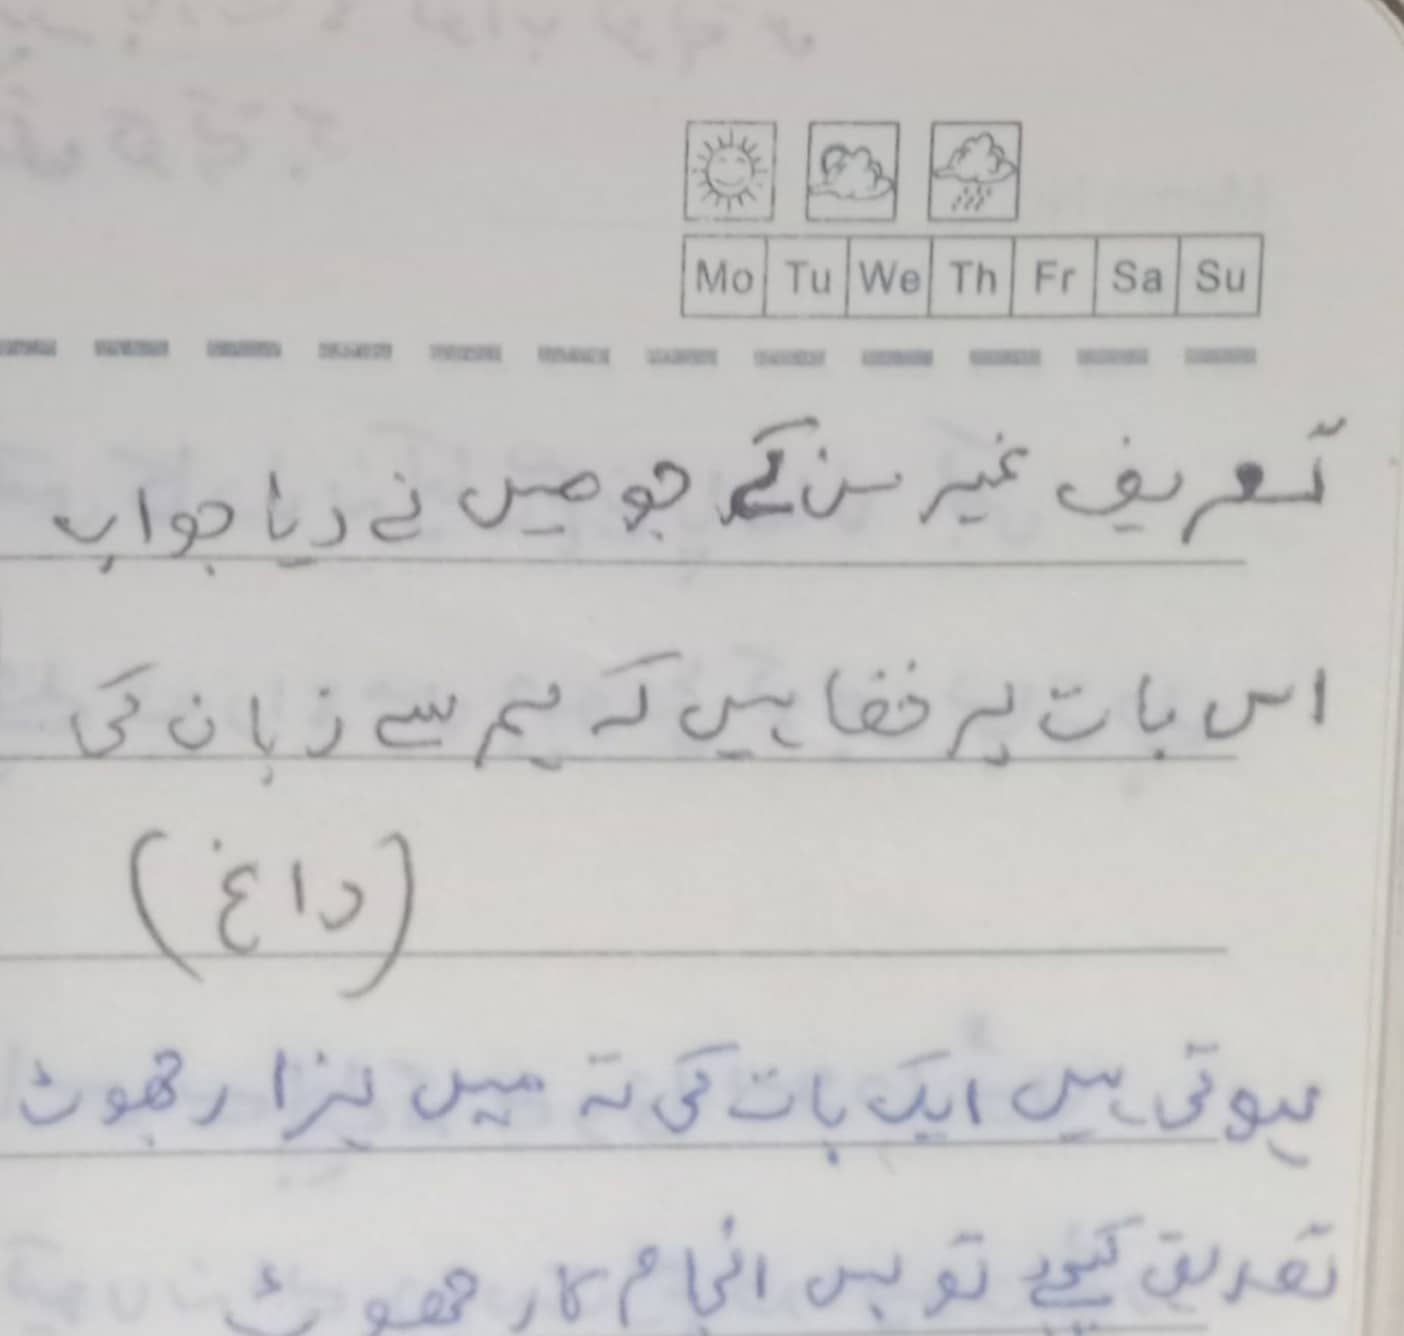 Mo Tu We Th Fr Sa Su
تعریف غیر سن کے جو میں نے دیا جواب
اس بات پر خفا ہیں کہ ہم سے زبان کی
(داغ)
ہوتی ہیں ایک بات کی تہ میں ہزار جھوٹ
تصدیق کیجیے تو بس انجام کار جھوٹ